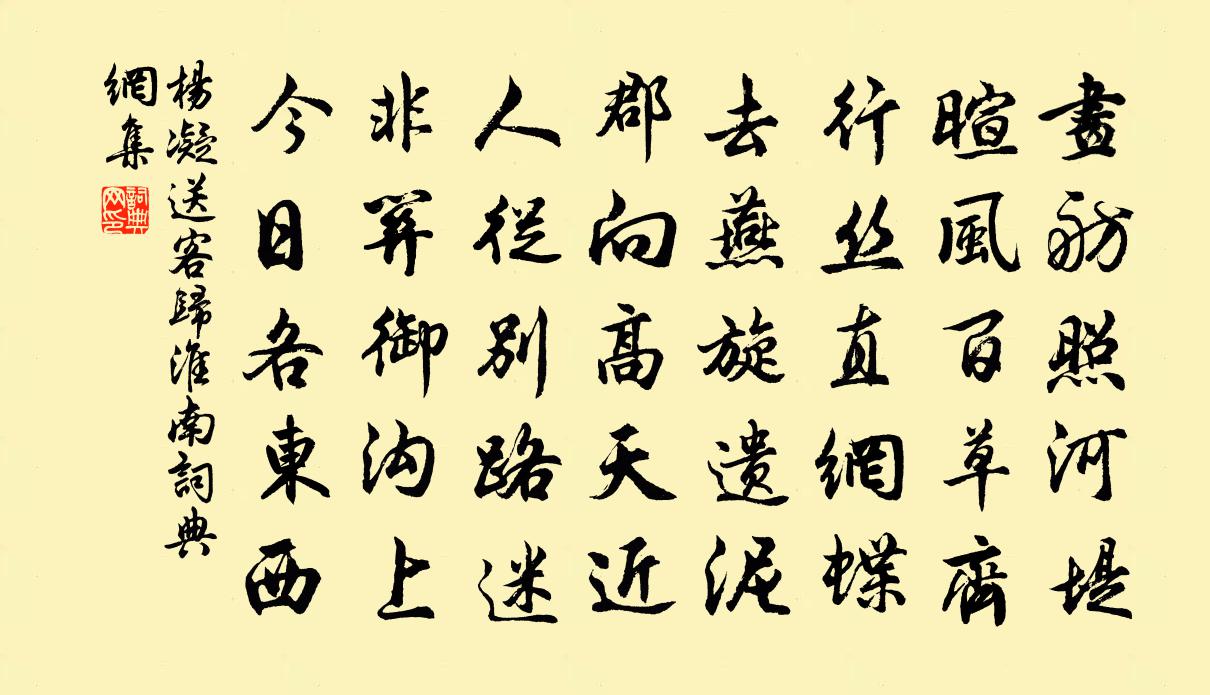 畫舫照河堤
暄風百草齊
行丝直網蝶
去燕旋遗泥
郡向高天近
人從別路迷
非筭御沟上
今日各東西
楊凝送客歸淮南詞典
網集
詞典網印